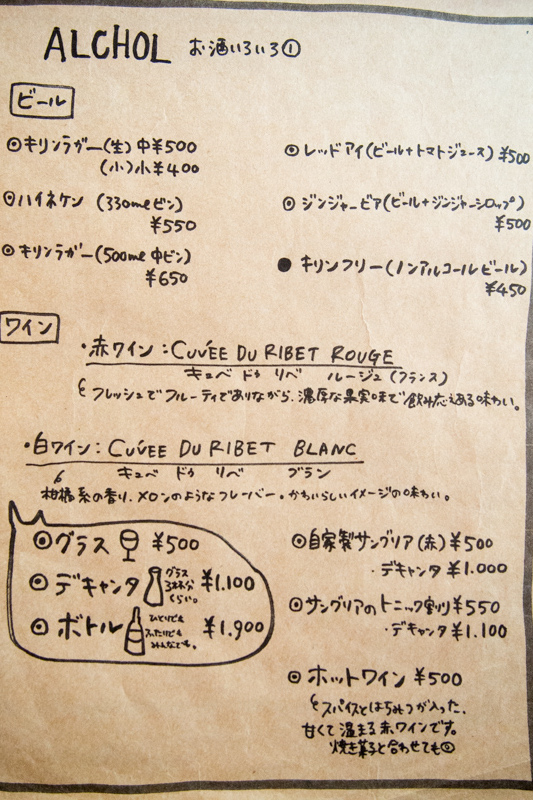 ALCHOL お酒いろいろ①
ビール
◎キリンラガー(生) 中¥500
(小)小¥400
◎ハイネケン (330mlビン)
¥550
◎キリンラガー(500ml 中ビン)
¥650
◎レッドアイ(ビール+トマトジュース) ¥500
◎ジンジャービア(ビール+ジンジャーシロップ)
¥500
●キリンフリー(ノンアルコールビール)
¥450
ワイン
・赤ワイン:CUVÉE DU RIBET ROUGE
キュベ ドゥ リベ ルージュ(フランス)
フレッシュでフルーティでありながら、濃厚な果実味で飲み応えある味わい。
・白ワイン:CUVÉE DU RIBET BLANC
キュベ ドゥ リベ ブラン
柑橘系の香り、メロンのようなフレーバー。かわいらしいイメージの味わい。
◎グラス ¥500
◎デキャンタ グラス3杯分くらい。 ¥1.100
◎ボトル ひとりでもふたりでもみんなでも。 ¥1.900
◎自家製サングリア(赤)¥500
・デキャンタ ¥1.000
◎サングリアのトニック割り¥550
・デキャンタ¥1.100
◎ホットワイン ¥500
スパイスとはちみつが入った、
甘くて温まる赤ワインです。
焼き菓子と合わせても◎